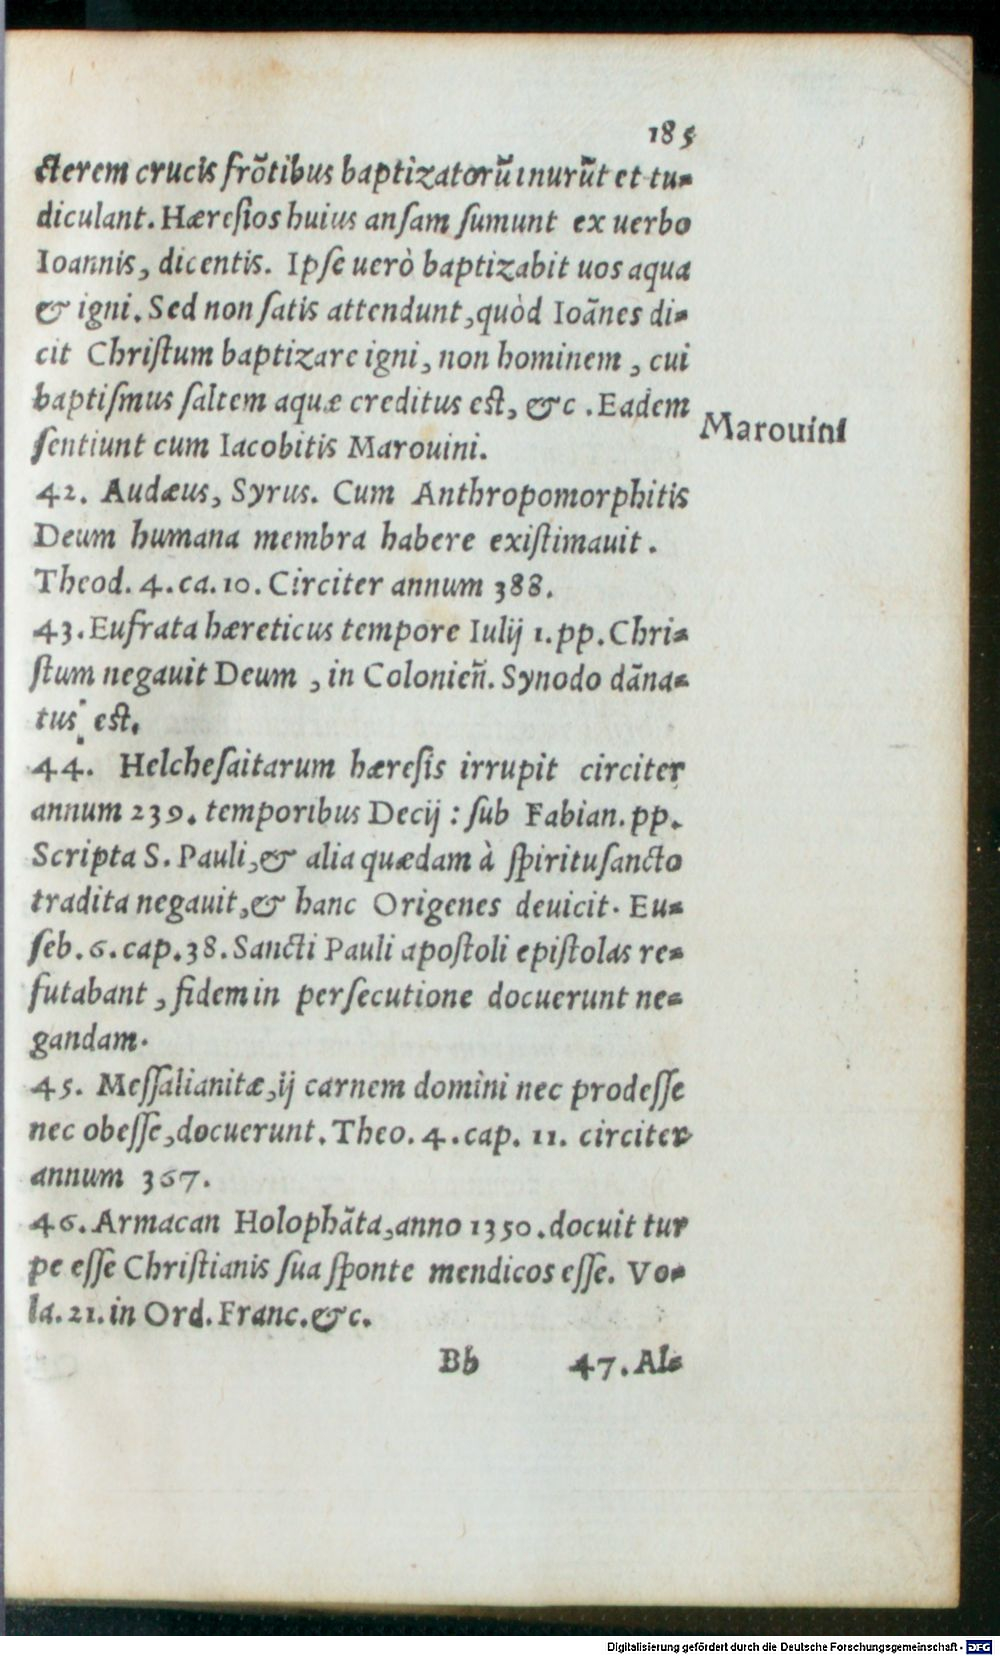 185
cterem crucis frõtibus baptizatorũ inurũt et tu-
diculant. Hæresios huius ansam sumunt ex uerbo
Ioannis, dicentis. Ipse uerò baptizabit uos aqua
& igni. Sed non satis attendunt, quòd Ioãnes di-
cit Christum baptizare igni, non hominem, cui
baptismus saltem aquæ creditus est, &c. Eadem
sentiunt cum Iacobitis Marouini.
Marouini
42. Audæus, Syrus. Cum Anthropomorphitis
Deum humana membra habere existimauit.
Theod. 4. ca. 10. Circiter annum 388.
43. Eufrata hæreticus tempore Iulij 1. pp. Chri-
stum negauit Deum, in Colonieñ. Synodo dãna-
tus est.
44. Helchesaitarum hæresis irrupit circiter
annum 239. temporibus Decij: sub Fabian. pp.
Scripta S. Pauli, & alia quædam à spiritusancto
tradita negauit, & hanc Origenes deuicit. Eu-
seb. 6. cap. 38. Sancti Pauli apostoli epistolas re-
futabant, fidem in persecutione docuerunt ne-
gandam.
45. Messalianitæ, ij carnem domini nec prodesse
nec obesse, docuerunt. Theo. 4. cap. 11. circiter
annum 367.
46. Armacan Holophãta, anno 1350. docuit tur
pe esse Christianis sua sponte mendicos esse. Vo-
la. 21. in Ord. Franc. &c.
Bb 47. Al-
Digitalisierung gefördert durch die Deutsche Forschungsgemeinschaft - DFG